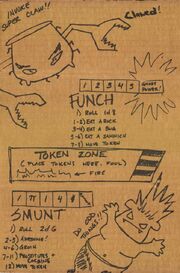 INVOKE
SUPER CLAW!!
Clawed!
1 2 3 4 5 GHOST POWER!
FUNCH
1) ROLL 1d8
1-2) EAT A ROCK
3-4) EAT A BUG
5-6) EAT A SANDWICH
7-8) MOVE TOKEN
TOKEN ZONE
(PLACE TOKENS HERE, FOOL)
← FIRE
1 π 4
SMUNT
1) ROLL 2d6
2-3) AWESOME!
4-6) GROIN
7-11) PROSTITUTES + COCAINE
12) MOVE TOKEN
DO GOOD
THINGS!!